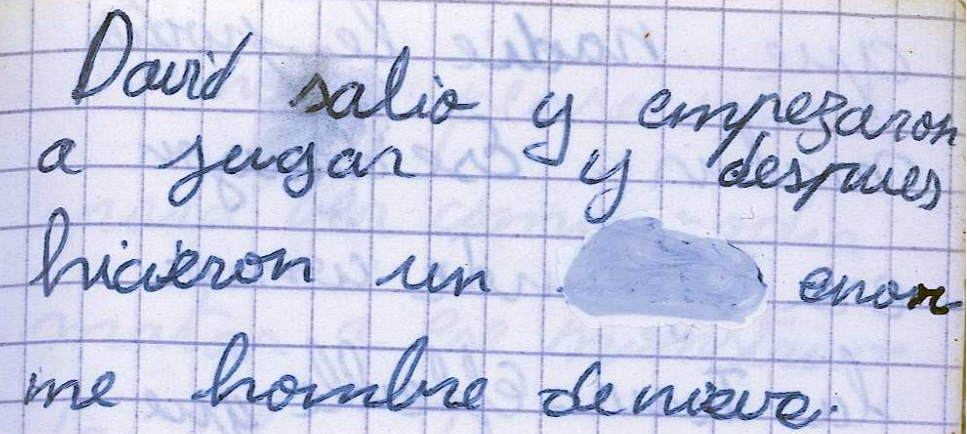 David salio y empezaron
a jugar y despues
hicieron un enor
me hombre de nieve.